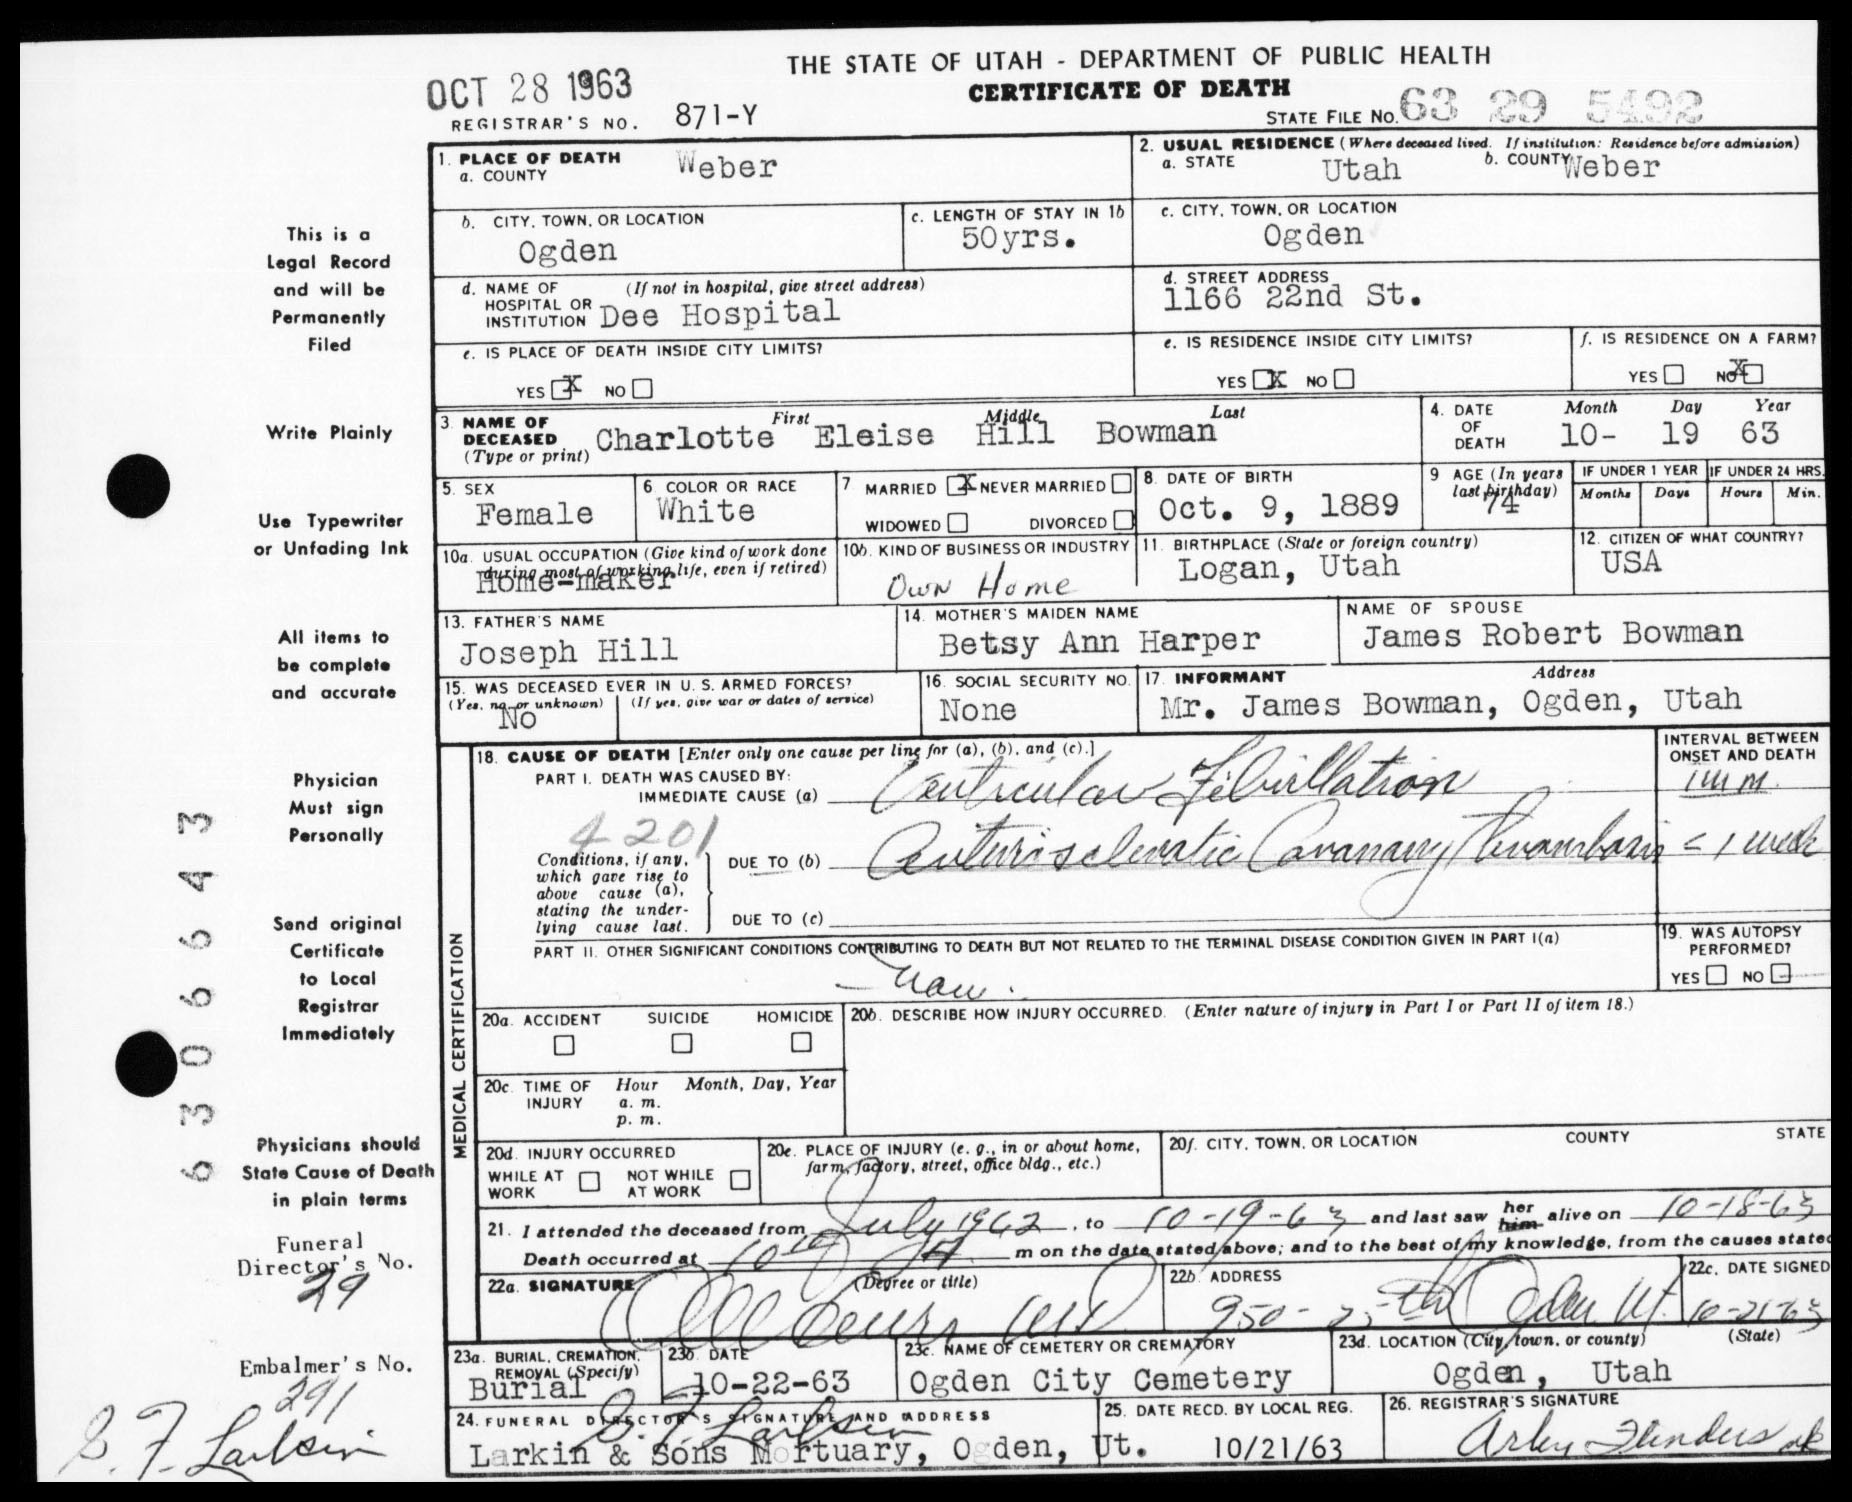 THE STATE OF UTAH - DEPARTMENT OF PUBLIC HEALTH
CERTIFICATE OF DEATH
OCT 28 1963
REGISTRAR'S NO. 871-Y
STATE FILE NO. 63 29 5492
1. PLACE OF DEATH
a. COUNTY Weber
2. USUAL RESIDENCE (Where deceased lived. If institution: Residence before admission)
a. STATE Utah b. COUNTY Weber
b. CITY, TOWN, OR LOCATION
Ogden
c. LENGTH OF STAY IN 1b
50yrs.
c. CITY, TOWN, OR LOCATION
Ogden
d. NAME OF HOSPITAL OR INSTITUTION (If not in hospital, give street address)
Dee Hospital
d. STREET ADDRESS
1166 22nd St.
e. IS PLACE OF DEATH INSIDE CITY LIMITS?
YES X NO
e. IS RESIDENCE INSIDE CITY LIMITS?
YES X NO
f. IS RESIDENCE ON A FARM?
YES NO X
3. NAME OF DECEASED (Type or print)
First Middle Last
Charlotte Eleise Hill Bowman
4. DATE OF DEATH
Month Day Year
10- 19 63
5. SEX
Female
6. COLOR OR RACE
White
7 MARRIED X NEVER MARRIED
WIDOWED DIVORCED
8. DATE OF BIRTH
Oct. 9, 1889
9 AGE (In years last birthday)
74
IF UNDER 1 YEAR
Months Days
IF UNDER 24 HRS.
Hours Min.
10a. USUAL OCCUPATION (Give kind of work done during most of working life, even if retired)
Home-maker
10b. KIND OF BUSINESS OR INDUSTRY
Own Home
11. BIRTHPLACE (State or foreign country)
Logan, Utah
12. CITIZEN OF WHAT COUNTRY?
USA
13. FATHER'S NAME
Joseph Hill
14. MOTHER'S MAIDEN NAME
Betsy Ann Harper
NAME OF SPOUSE
James Robert Bowman
15. WAS DECEASED EVER IN U.S. ARMED FORCES?
(Yes, no, or unknown) (If yes, give war or dates of service)
No
16. SOCIAL SECURITY NO.
None
17. INFORMANT Address
Mr. James Bowman, Ogden, Utah
MEDICAL CERTIFICATION
18. CAUSE OF DEATH [Enter only one cause per line for (a), (b), and (c).]
PART I. DEATH WAS CAUSED BY:
IMMEDIATE CAUSE (a) Ventricular Fibrillation
INTERVAL BETWEEN ONSET AND DEATH
4201
Conditions, if any, which gave rise to above cause (a), stating the underlying cause last.
DUE TO (b) Arteriosclerotic Coronary Thrombosis = 1 week
DUE TO (c)
PART II. OTHER SIGNIFICANT CONDITIONS CONTRIBUTING TO DEATH BUT NOT RELATED TO THE TERMINAL DISEASE CONDITION GIVEN IN PART I(a)
19. WAS AUTOPSY PERFORMED?
YES NO
20a. ACCIDENT SUICIDE HOMICIDE
20b. DESCRIBE HOW INJURY OCCURRED. (Enter nature of injury in Part I or Part II of item 18.)
20c. TIME OF INJURY Hour Month, Day, Year
a. m.
p. m.
20d. INJURY OCCURRED
WHILE AT WORK NOT WHILE AT WORK
20e. PLACE OF INJURY (e. g., in or about home, farm, factory, street, office bldg., etc.)
20f. CITY, TOWN, OR LOCATION COUNTY STATE
21. I attended the deceased from July 1962, to 10-19-63 and last saw her him alive on 10-18-63
Death occurred at 10 A m on the date stated above; and to the best of my knowledge, from the causes stated
22a. SIGNATURE (Degree or title)
22b. ADDRESS
950 - 25th Ogden Ut.
22c. DATE SIGNED
10-21-63
23a. BURIAL, CREMATION, REMOVAL (Specify)
Burial
23b. DATE
10-22-63
23c. NAME OF CEMETERY OR CREMATORY
Ogden City Cemetery
23d. LOCATION (City, town, or county) (State)
Ogden, Utah
24. FUNERAL DIRECTOR'S SIGNATURE AND ADDRESS
S. F. Larkin
Larkin & Sons Mortuary, Ogden, Ut.
25. DATE RECD. BY LOCAL REG.
10/21/63
26. REGISTRAR'S SIGNATURE
This is a
Legal Record
and will be
Permanently
Filed
Write Plainly
Use Typewriter
or Unfading Ink
All items to
be complete
and accurate
Physician
Must sign
Personally
Send original
Certificate
to Local
Registrar
Immediately
Physicians should
State Cause of Death
in plain terms
Funeral
Director's No.
29
Embalmer's No.
291
S. F. Larkin
6306643